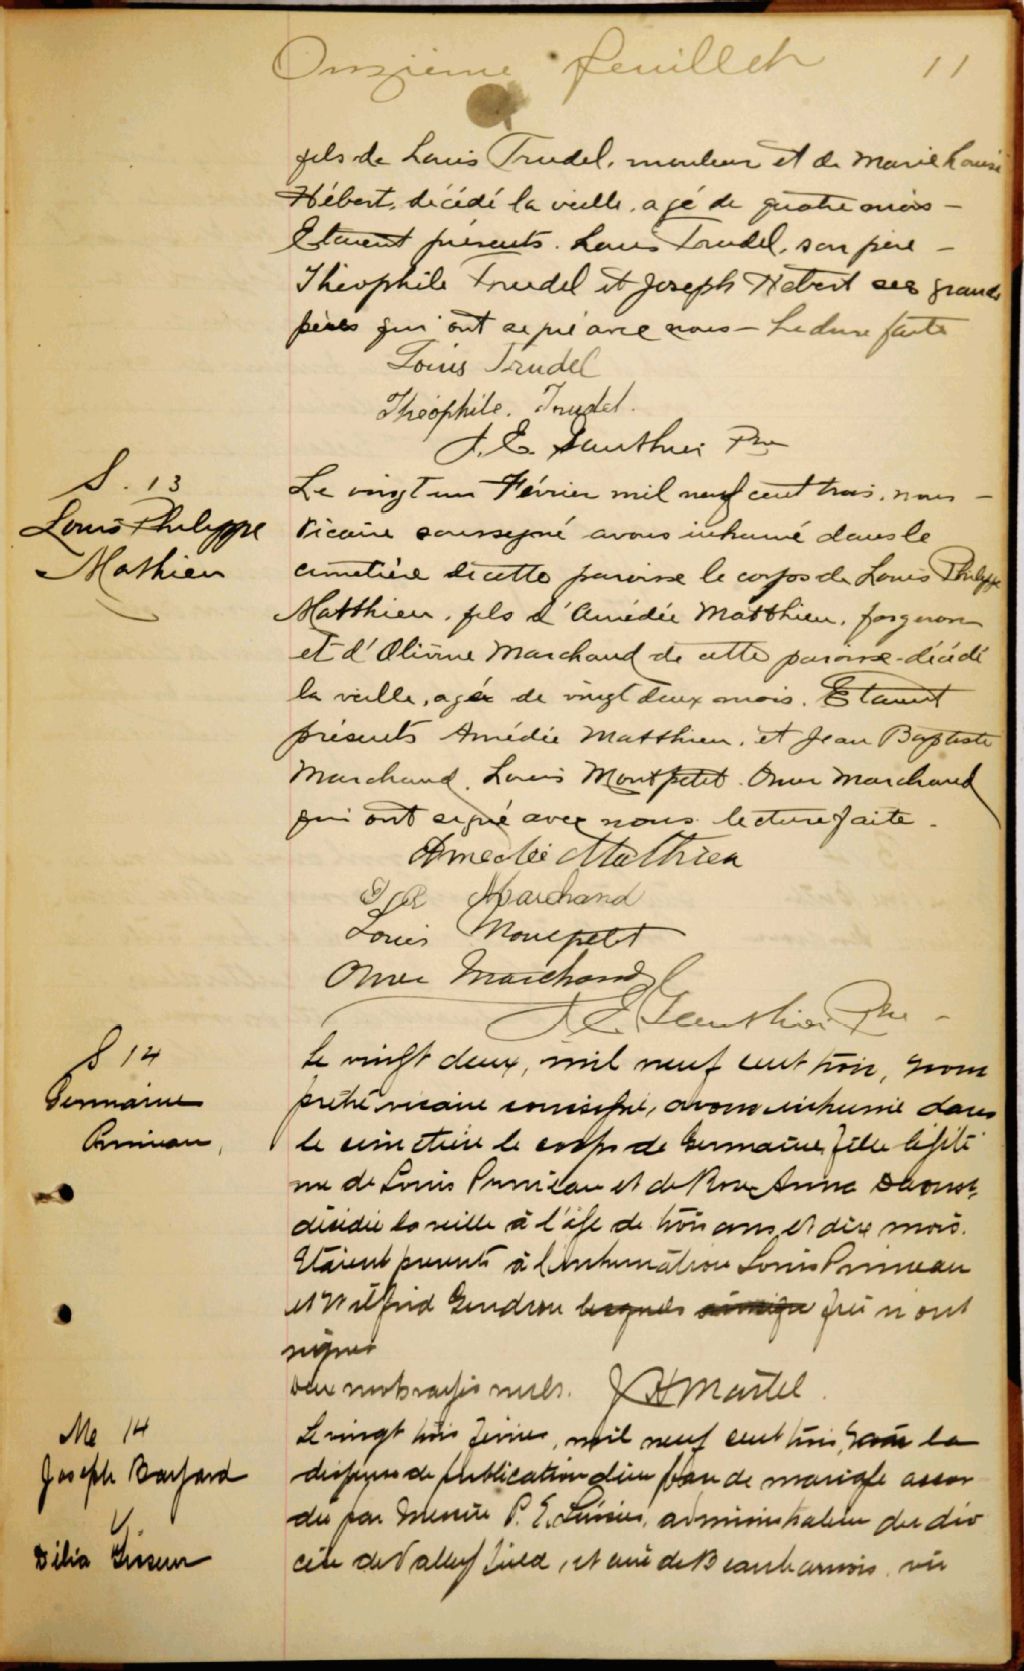 Onzième feuillet 11
fils de Louis Trudel, mouleur et de Marie Louise
Hébert, décédé la veille, agé de quatre mois —
Etaient présents. Louis Trudel, son père —
Théophile Trudel et Joseph Hébert ses grands
pères qui ont signé avec nous — Lecture faite
Louis Trudel
Théophile. Trudel.
J. E. Gauthier Ptre
S. 13
Louis Philippe
Mathieu
Le vingt un Février mil neuf cent trois, nous —
Vicaire soussigné avons inhumé dans le
cimetière de cette paroisse le corps de Louis Philippe
Matthieu, fils d'Amédée Matthieu, forgeron
et d'Olivine Marchand de cette paroisse - décédé
la veille, agé de vingt deux mois. Etaient
présents Amédée Matthieu, et Jean Baptiste
Marchand, Louis Montpetit. Omer Marchand
qui ont signé avec nous lecture faite.
Amedée Mathieu
J B Marchand
Louis Monpetit
Omer Marchand
J. E. Gauthier Ptre —
S 14
Germaine
Primeau,
Le vingt deux, mil neuf cent trois, nous
prêtre vicaire soussigné, avons inhumé dans
le cimetière le corps de Germaine, fille légiti
me de Louis Primeau et de Rose Anna Daoust,
décédée la veille à l'âge de trois ans et dix mois.
Etaient présents à l'inhumation Louis Primeau
et Wilfrid Gendron lesquels qui n'ont
signer
deux mots rayés nuls. J H Martel
Me 14
Joseph Barfard
&
Délia
Le vingt trois février, mil neuf cent trois, la
dispense de publication d'un ban de mariage accor
dée par Messire P. E. Lussier, administrateur du dio
cèse de Valleyfield, et curé de Beauharnois, vu